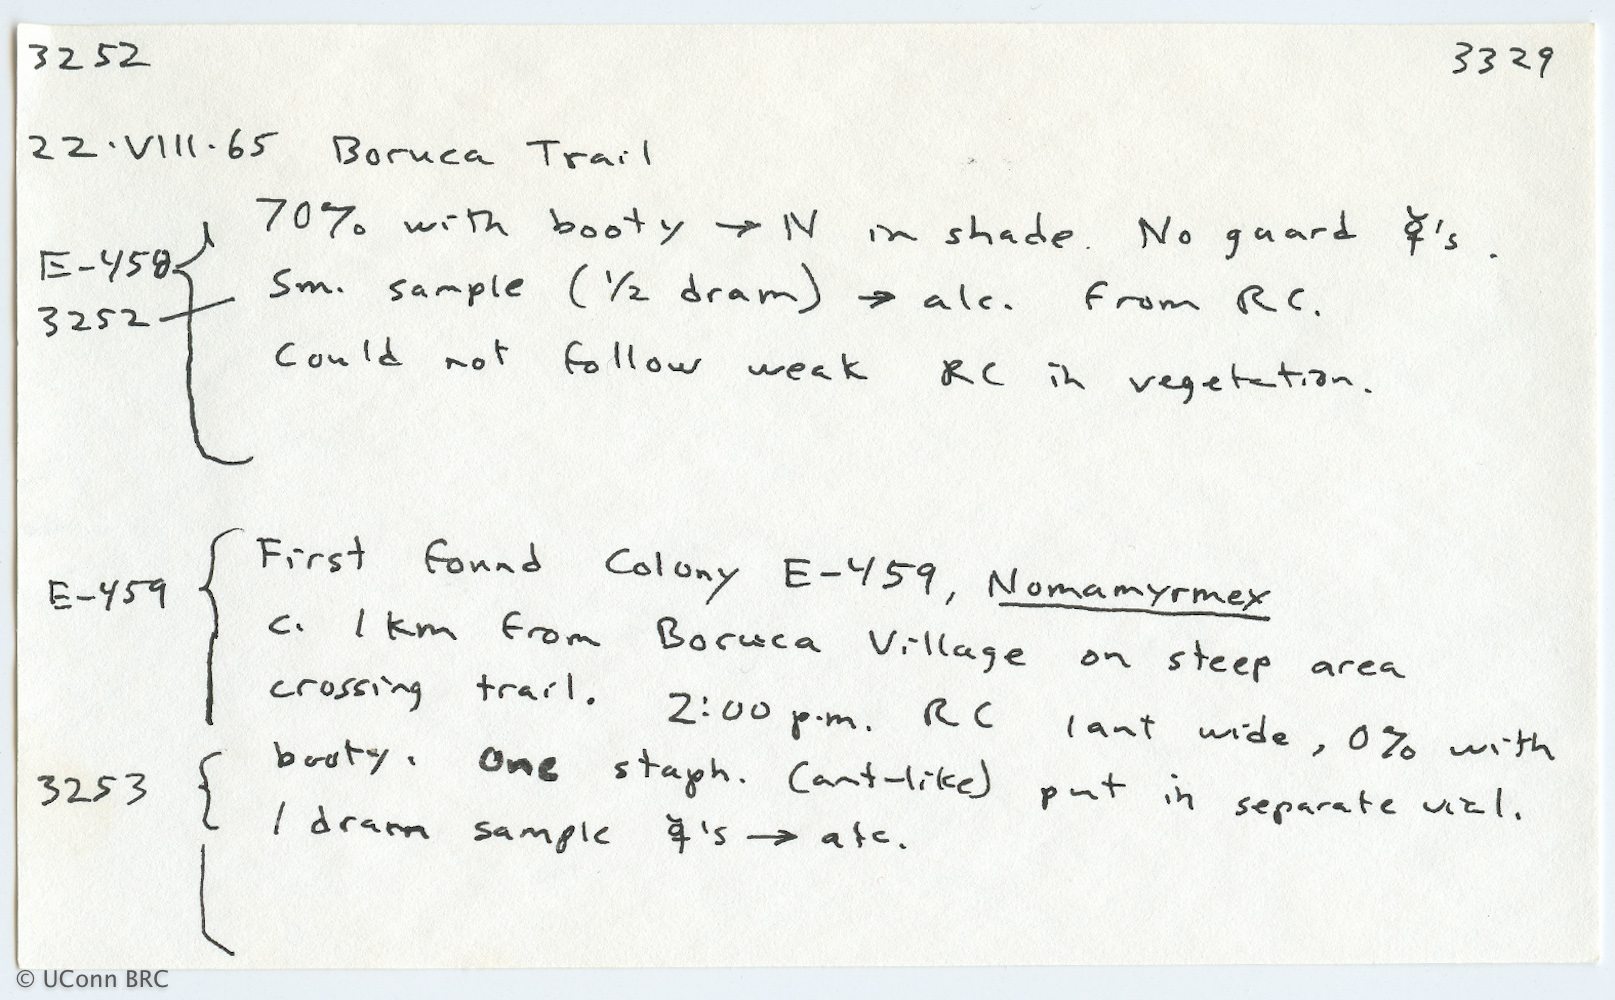 3252 3329
22·VIII·65 Boruca Trail
70% with booty → N in shade. No guard ☿'s.
E-458 Sm. sample (1/2 dram) → alc. from RC.
3252
Could not follow weak RC in vegetation.
First found Colony E-459, Nomamyrmex
E-459 c. 1 km from Boruca Village on steep area
crossing trail. 2:00 p.m. RC 1 ant wide, 0% with
3253 booty. One staph. (ant-like) put in separate vial.
1 dram sample ☿'s → alc.
© UConn BRC